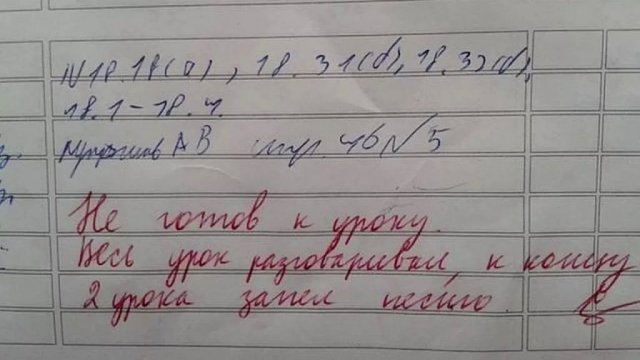 N18.18(а), 18.31(б), 18.32(б),
18.1-18.4.
АВ стр. 46 N 5
Не готов к уроку.
Весь урок разговаривал, к концу
2 урока запел песню.